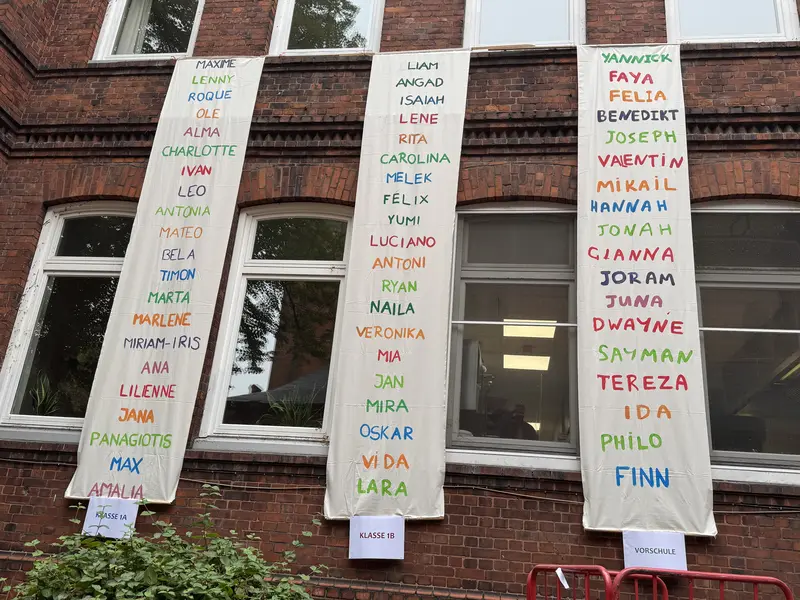 MAXIME
LENNY
ROQUE
OLE
ALMA
CHARLOTTE
IVAN
LEO
ANTONIA
MATEO
BELA
TIMON
MARTA
MARLENE
MIRIAM-IRIS
ANA
LILIENNE
JANA
PANAGIOTIS
MAX
AMALIA
KLASSE 1A
LIAM
ANGAD
ISAIAH
LENE
RITA
CAROLINA
MELEK
FELIX
YUMI
LUCIANO
ANTONI
RYAN
NAILA
VERONIKA
MIA
JAN
MIRA
OSKAR
VIDA
LARA
KLASSE 1B
YANNICK
FAYA
FELIA
BENEDIKT
JOSEPH
VALENTIN
MIKAIL
HANNAH
JONAH
GIANNA
JORAM
JUNA
DWAYNE
SAYMAN
TEREZA
IDA
PHILO
FINN
VORSCHULE